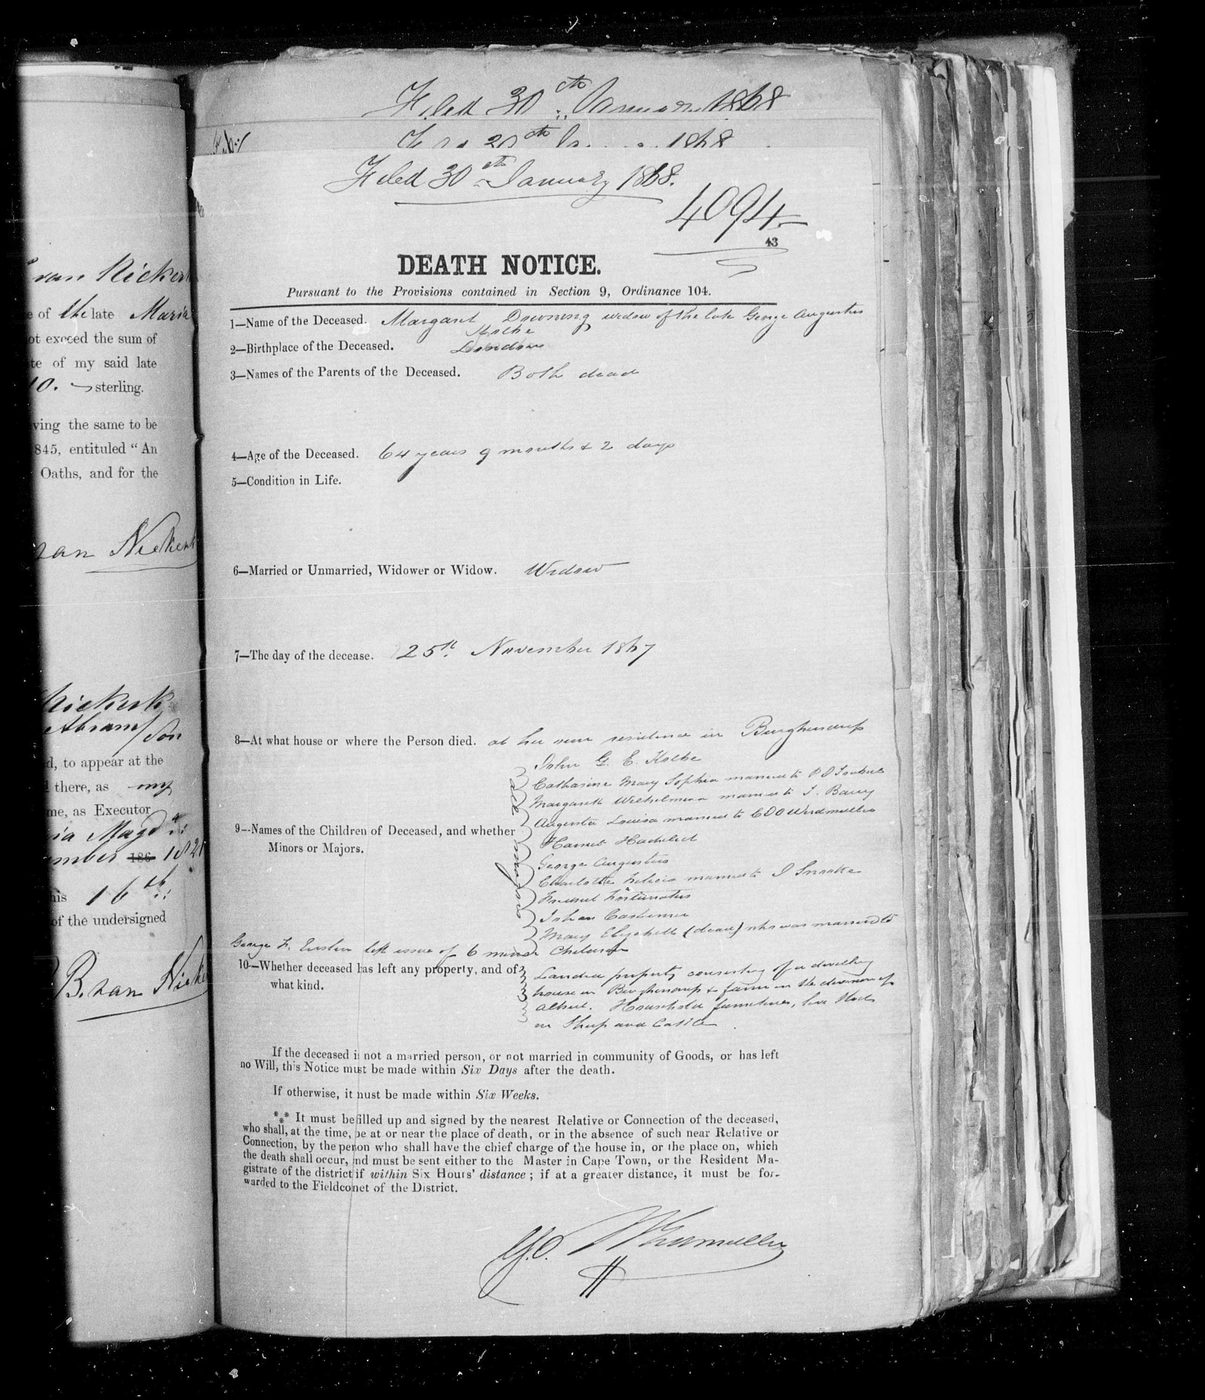 Filed 30th January 1868
1868
Filed 30th January 1868.
4094
43
DEATH NOTICE.
Pursuant to the Provisions contained in Section 9, Ordinance 104.
1—Name of the Deceased. Margaret Downing widow of the late George Augustus
2—Birthplace of the Deceased. London
3—Names of the Parents of the Deceased. Both dead
4—Age of the Deceased. 64 years 9 months & 2 days
5—Condition in Life.
6—Married or Unmarried, Widower or Widow. Widow
7—The day of the decease. 25th November 1867
8—At what house or where the Person died. at her own residence in Burghersdorp
John G. E.
Catharina Mary Sophia married to
Margaret Wilhelmina married to J. Barry
Augusta Louisa married to
9—Names of the Children of Deceased, and whether
Minors or Majors.
all majors
Harriet
George Augustus
Charlotte Felicia married to J
Fortunatus
Mary Elizabeth (dead) who was married to
George F. left issue of 6 minor Children
10—Whether deceased has left any property, and of
what kind.
Landed property consisting of a dwelling
house in Burghersdorp & farm in the division of
Albert. Household furniture, live Stock
in Sheep and Cattle.
If the deceased is not a married person, or not married in community of Goods, or has left
no Will, this Notice must be made within Six Days after the death.
If otherwise, it must be made within Six Weeks.
*** It must be filled up and signed by the nearest Relative or Connection of the deceased,
who shall, at the time, be at or near the place of death, or in the absence of such near Relative or
Connection, by the person who shall have the chief charge of the house in, or the place on, which
the death shall occur, and must be sent either to the Master in Cape Town, or the Resident Ma-
gistrate of the district if within Six Hours' distance; if at a greater distance, it must be for-
warded to the Fieldconet of the District.
van Niekerk
e of the late Maria
ot exceed the sum of
te of my said late
10. sterling.
ving the same to be
845, entituled "An
Oaths, and for the
van Niekerk
Niekerk
Abram / son
d, to appear at the
there, as my
me, as Executor
186
his 16th
of the undersigned
B. van Niekerk